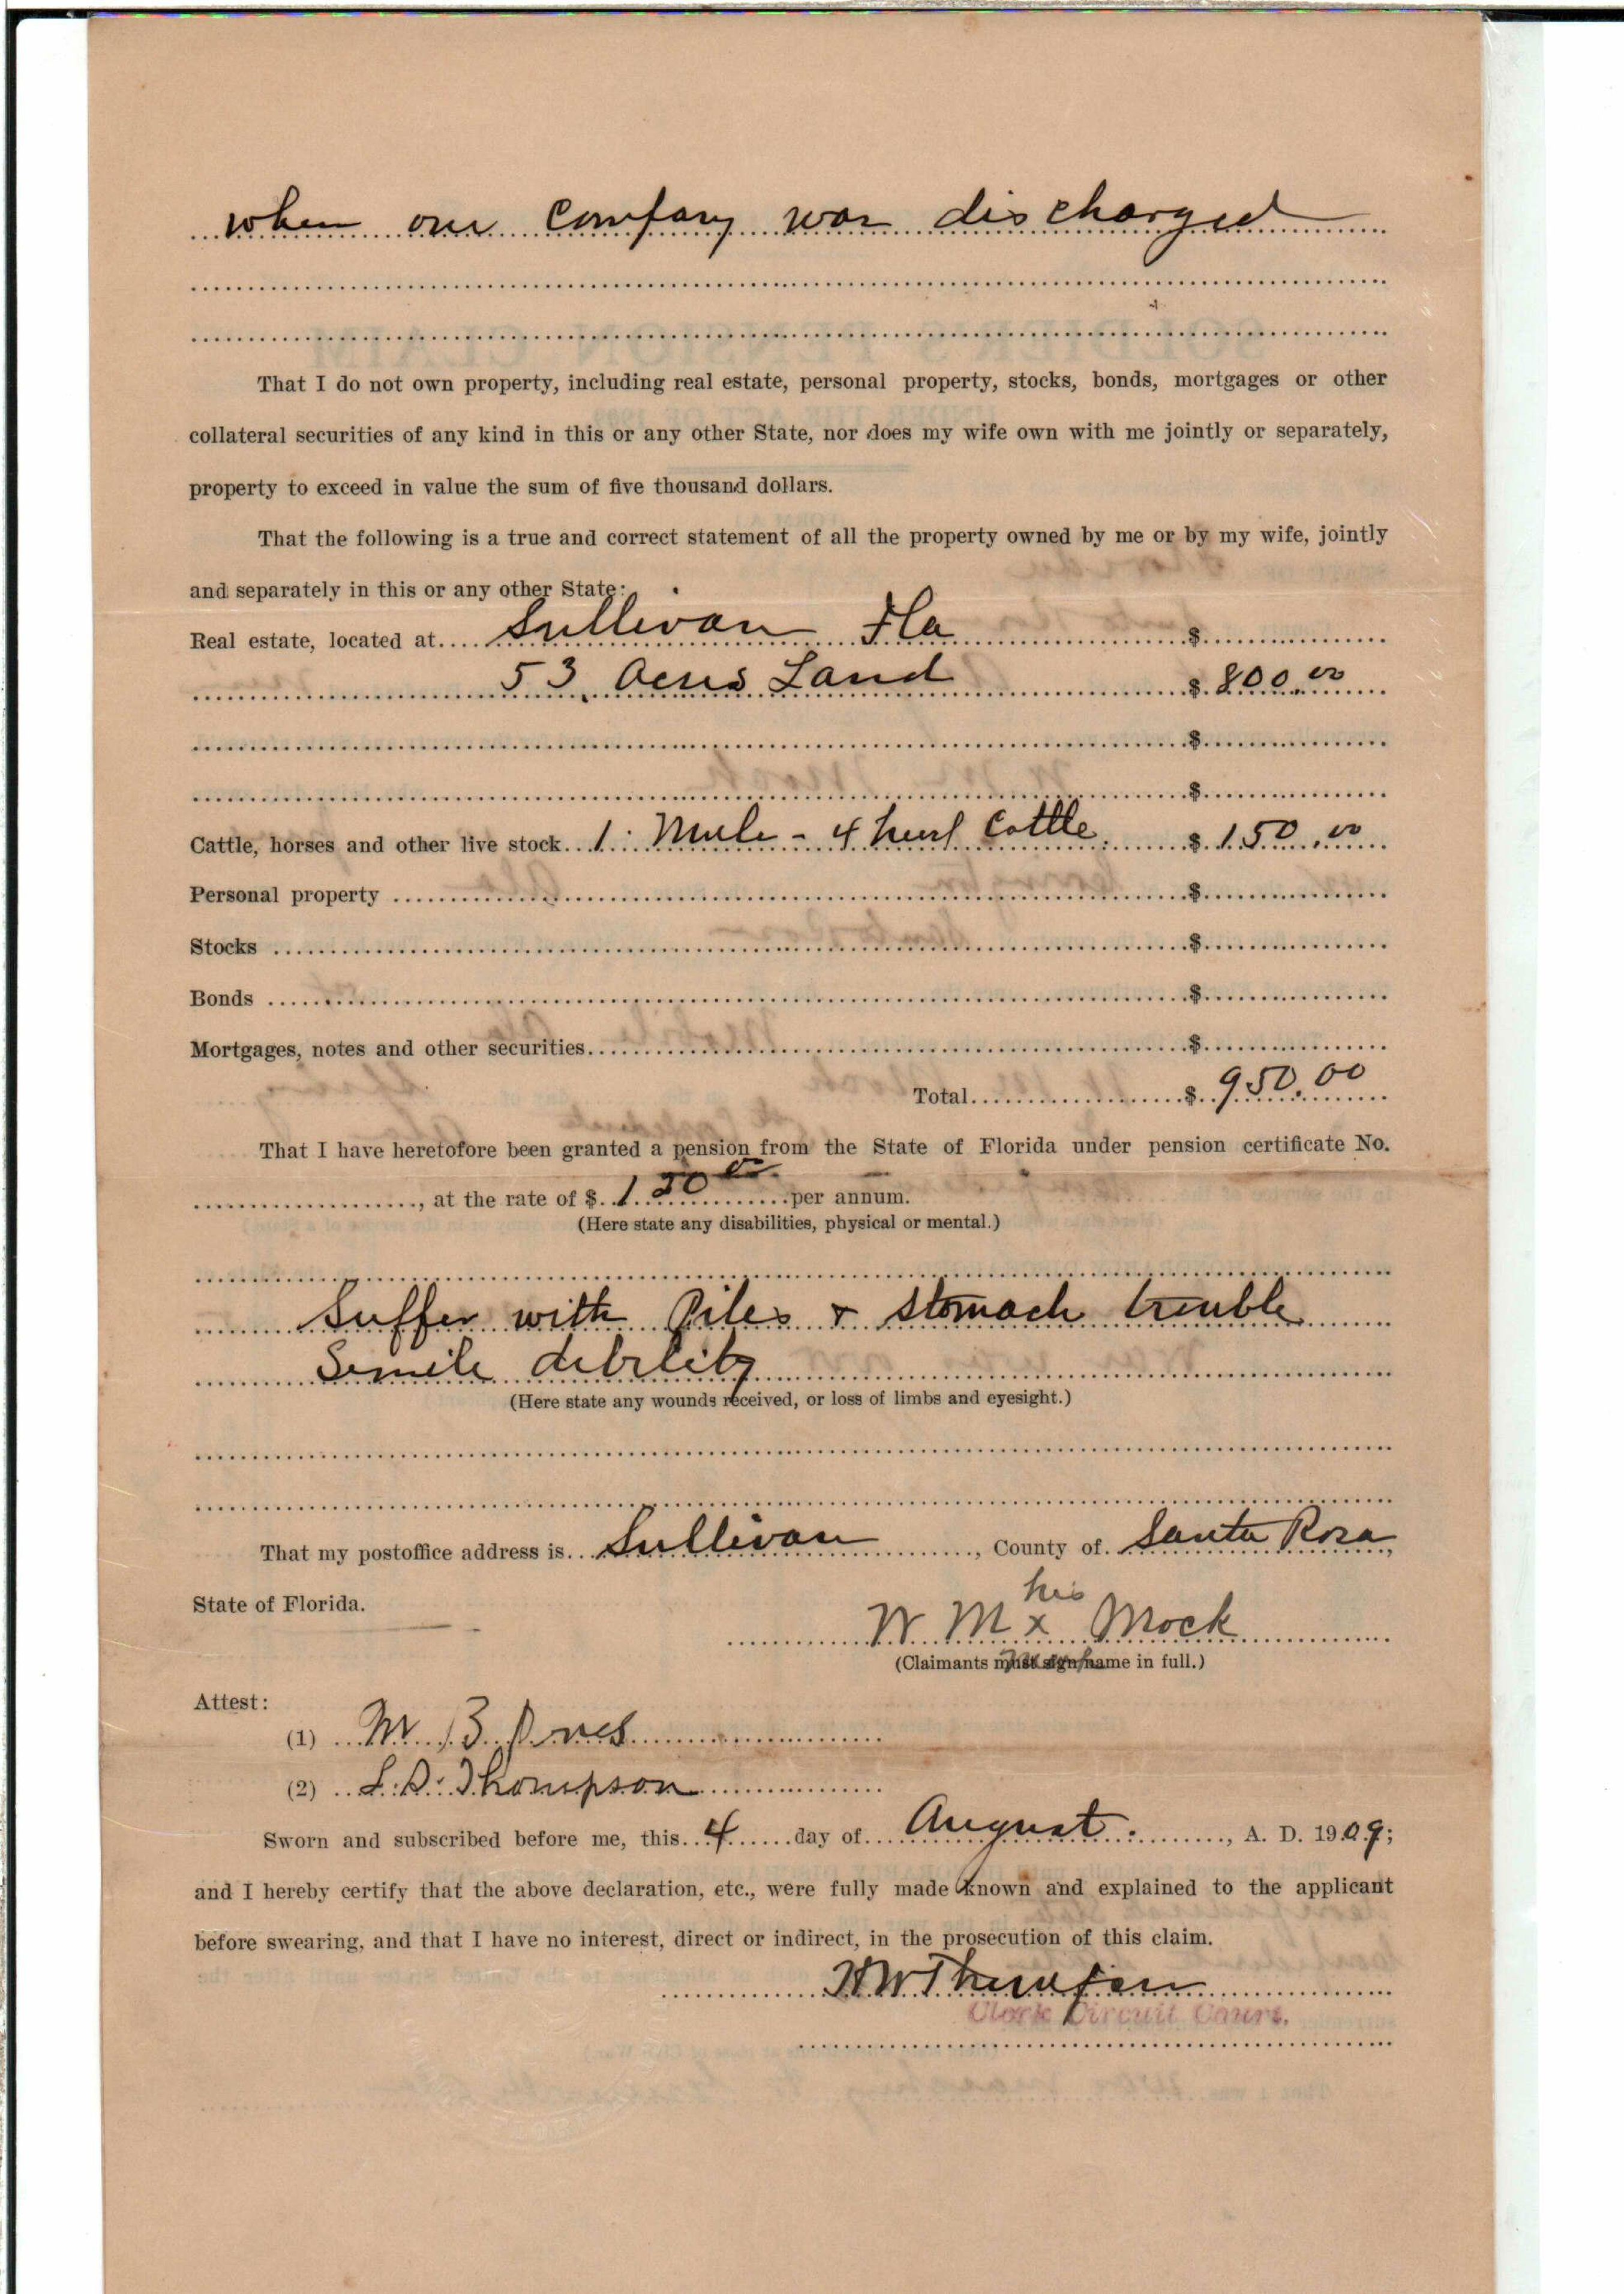 when our company was discharged
That I do not own property, including real estate, personal property, stocks, bonds, mortgages or other
collateral securities of any kind in this or any other State, nor does my wife own with me jointly or separately,
property to exceed in value the sum of five thousand dollars.
That the following is a true and correct statement of all the property owned by me or by my wife, jointly
and separately in this or any other State:
Real estate, located at.... Sullivan Fla $
53 Acres Land $ 800.00
$
$
Cattle, horses and other live stock.. 1 Mule - 4 head Cattle. $ 150.00
Personal property $
Stocks $
Bonds $
Mortgages, notes and other securities $
Total $ 950.00
That I have heretofore been granted a pension from the State of Florida under pension certificate No.
, at the rate of $ per annum.
(Here state any disabilities, physical or mental.)
Suffer with Piles & stomach trouble
Senile debility
(Here state any wounds received, or loss of limbs and eyesight.)
That my postoffice address is... Sullivan, County of. Santa Rosa,
State of Florida.
his
W. M. x Mock
mark
(Claimants must sign name in full.)
Attest:
(1)
(2) L. D. Thompson
Sworn and subscribed before me, this.. 4 day of.... August, A. D. 1909;
and I hereby certify that the above declaration, etc., were fully made known and explained to the applicant
before swearing, and that I have no interest, direct or indirect, in the prosecution of this claim.
H W Thompson
Clerk Circuit Court.